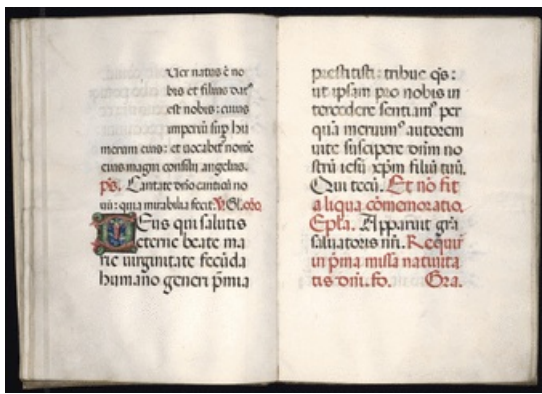 Uer natus ē no
bis et filius dat⁹
est nobis: cuius
imperiū suꝑ hu
merum eius: et uocabit᷑ nomē
eius magni consilii angelus.
p̄s. Cantate dn̄o canticū no
uū: quia mirabilia fecit. ℣. Gl̄
Deus qui salutis
eterne beate ma
rie uirginitate fecūda
humano generi p̄mia
prestitisti: tribue q̄s:
ut ipsam pro nobis in
tercedere sentiam⁹ per
quā meruim⁹ autorem
uite suscipere dn̄m no
strū iesū xp̄m filiū tuū.
Qui tecū. Et nō fit
aliqua cōmemoratio.
Ep̄la. Apparuit gr̄a
saluatoris nr̄i. Requir᷑
in p̄ma missa natiuita
tis dn̄i. fo. Gra.